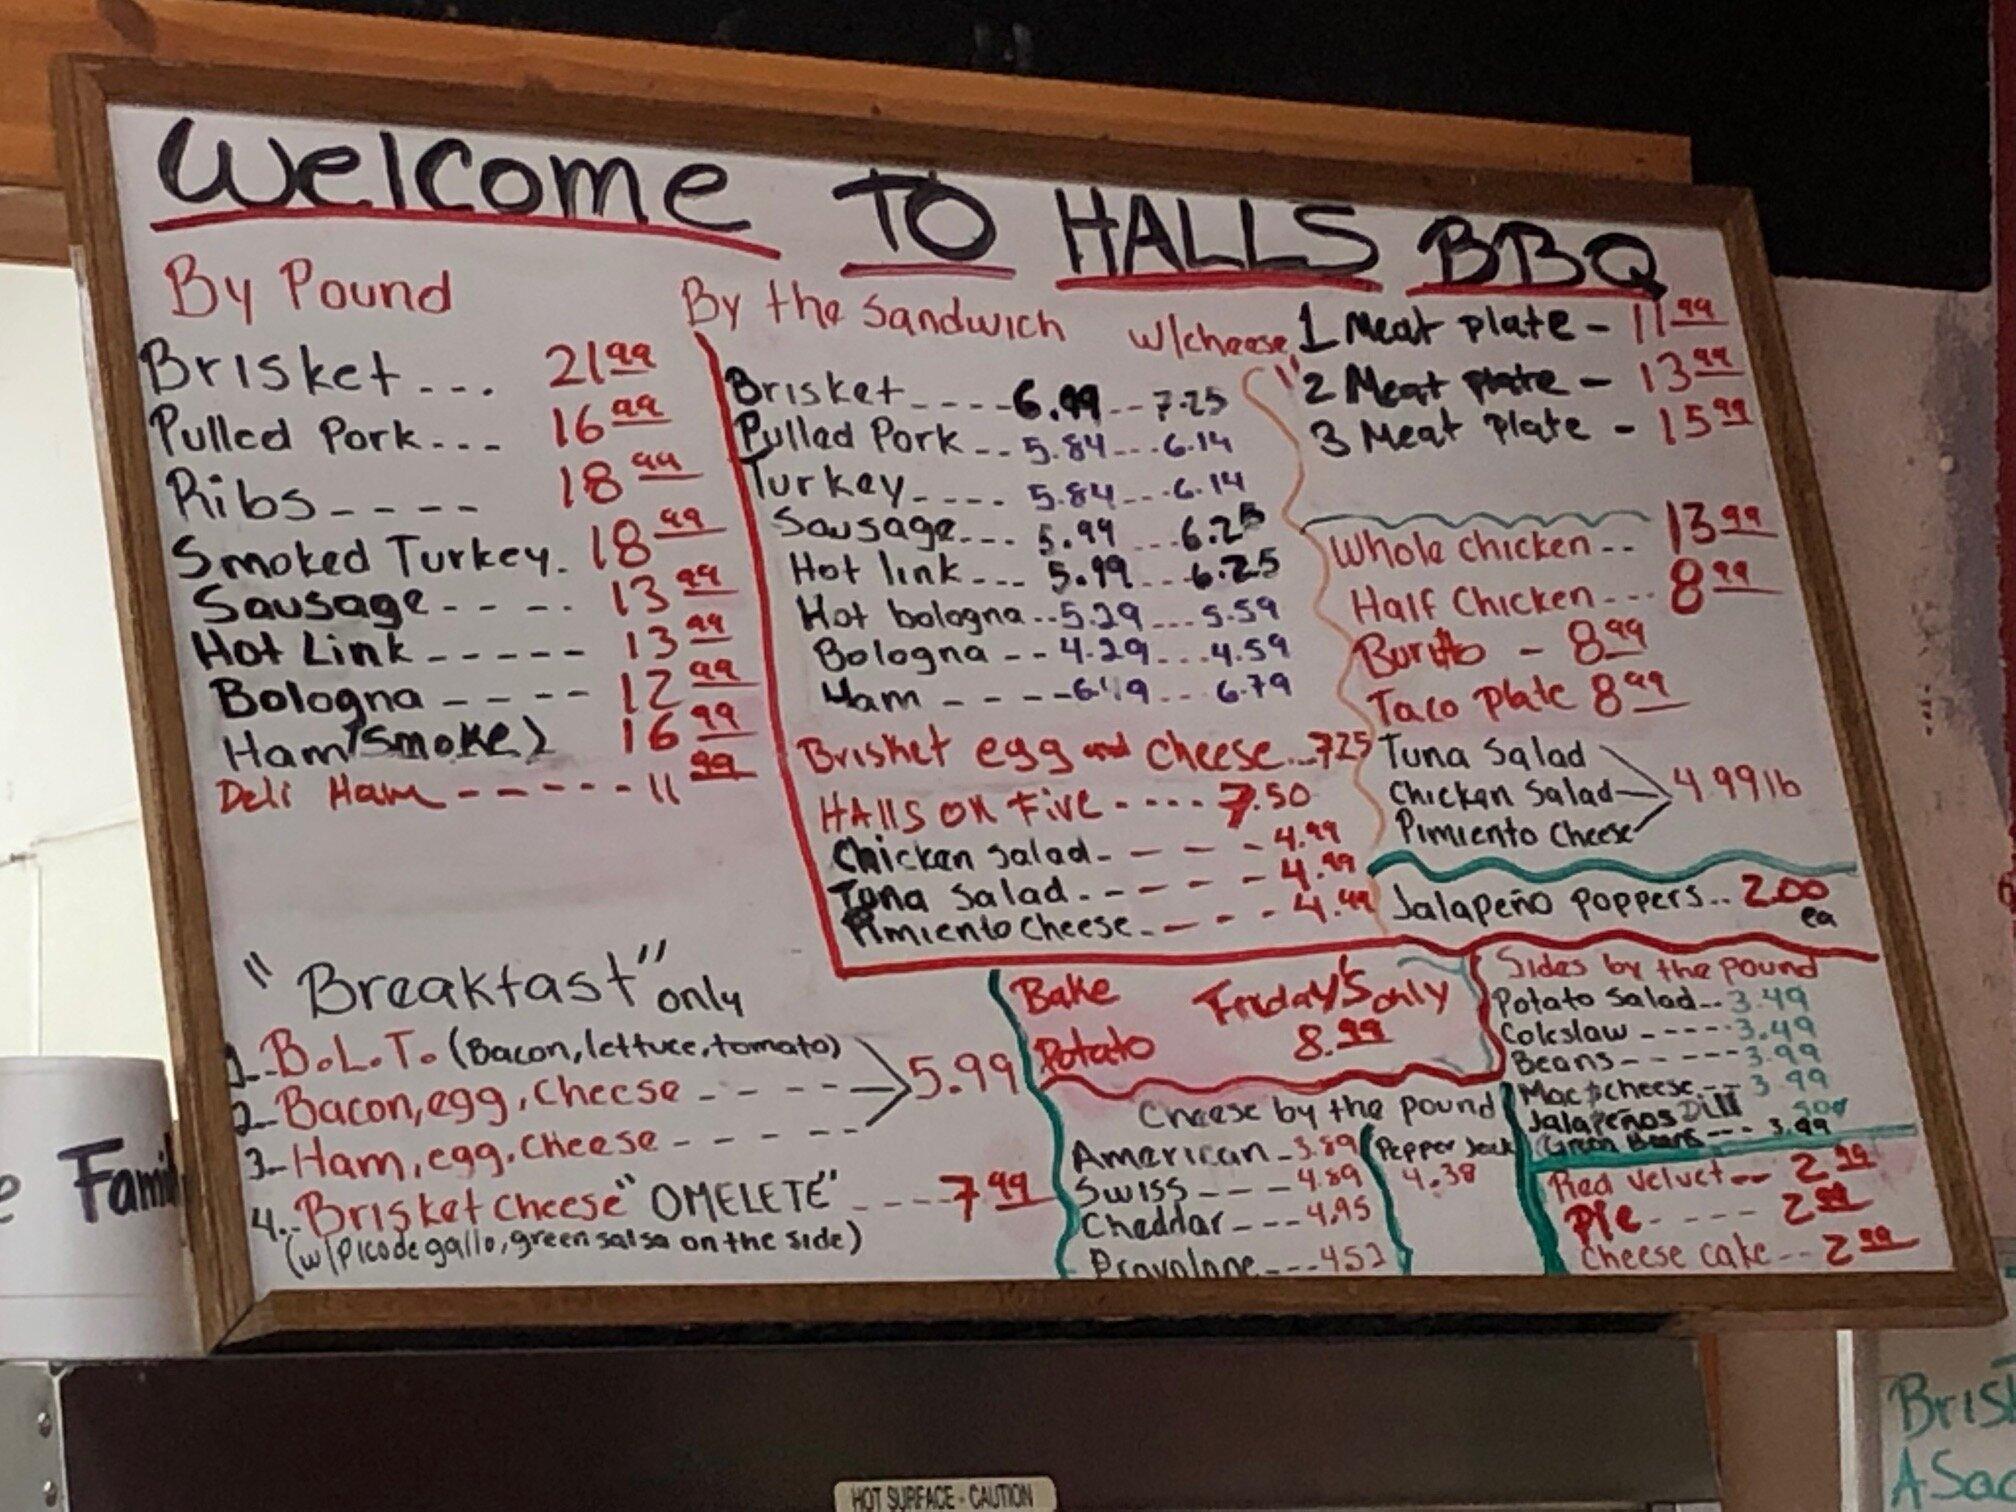 Welcome TO HALLS BBQ
By Pound
Brisket... 21.99
Pulled Pork... 16.99
Ribs---- 18.99
Smoked Turkey. 18.99
Sausage---- 13.99
Hot Link----- 13.99
Bologna---- 12.99
Ham (Smoke) 16.99
Deli Ham------ 11.99
By the Sandwich w/cheese
Brisket----6.99--7.25
Pulled Pork--5.84---6.14
Turkey----5.84---6.14
Sausage---5.99---6.25
Hot link---5.99---6.25
Hot bologna--5.29---5.59
Bologna--4.29---4.59
Ham----6.49---6.79
Brisket egg and cheese...7.25
HALLS ON FIVE----7.50
Chicken Salad----4.99
Tuna Salad-----4.99
Pimiento Cheese----4.99
1 Meat plate - 11.99
2 Meat plate - 13.99
3 Meat plate - 15.99
Whole chicken-- 13.99
Half Chicken--- 8.99
Burrito - 8.99
Taco plate 8.99
Tuna Salad
Chicken Salad 4.99 lb
Pimiento Cheese
Jalapeño Poppers.. 2.00
ea
"Breakfast" only
1. B.L.T. (Bacon, lettuce, tomato)
2- Bacon, egg, cheese---- 5.99
3- Ham, egg, cheese-----
4.. Brisket cheese "OMELETE"---- 7.99
(w/Pico de gallo, green salsa on the side)
Bake Friday's only
Potato 8.99
Cheese by the pound
American-3.89
Swiss---4.89
Cheddar---4.95
Provolone---4.52
Pepper Jack
4.38
Sides by the pound
Potato Salad--3.49
Coleslaw-----3.49
Beans-----3.99
Mac $ cheese--3.99
Jalapeños Dill 50¢
Green Beans---3.99
Red velvet-- 2.99
Pie---- 2.99
Cheese cake-- 2.99
HOT SURFACE - CAUTION